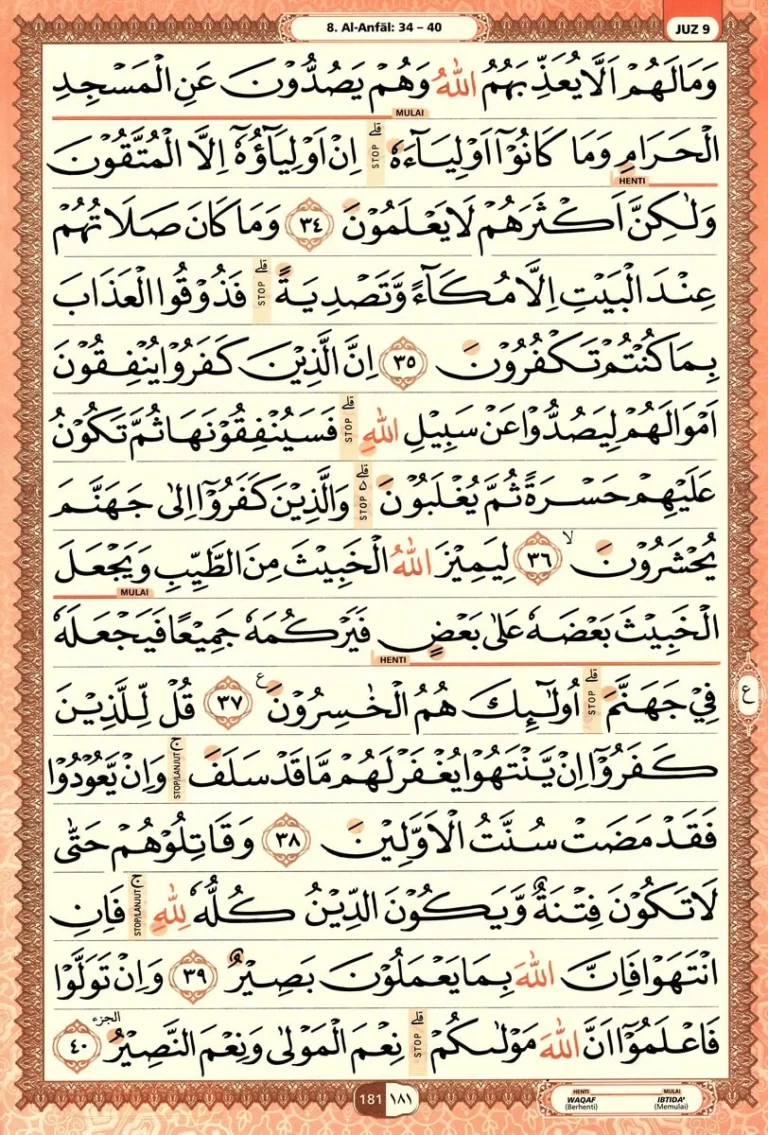 8. Al-Anfāl: 34 – 40
JUZ 9
وَمَا لَهُمْ اَلَّا يُعَذِّبَهُمُ اللّٰهُ وَهُمْ يَصُدُّوْنَ عَنِ الْمَسْجِدِ
MULAI
الْحَرَامِ وَمَا كَانُوْٓا اَوْلِيَاۤءَهٗ ۗ STOP اِنْ اَوْلِيَاۤؤُهٗٓ اِلَّا الْمُتَّقُوْنَ
HENTI
وَلٰكِنَّ اَكْثَرَهُمْ لَا يَعْلَمُوْنَ ٣٤ وَمَا كَانَ صَلَاتُهُمْ
عِنْدَ الْبَيْتِ اِلَّا مُكَاۤءً وَّتَصْدِيَةً ۗ STOP فَذُوْقُوا الْعَذَابَ
بِمَا كُنْتُمْ تَكْفُرُوْنَ ٣٥ اِنَّ الَّذِيْنَ كَفَرُوْا يُنْفِقُوْنَ
اَمْوَالَهُمْ لِيَصُدُّوْا عَنْ سَبِيْلِ اللّٰهِ ۗ STOP فَسَيُنْفِقُوْنَهَا ثُمَّ تَكُوْنُ
عَلَيْهِمْ حَسْرَةً ثُمَّ يُغْلَبُوْنَ ۗ STOP وَالَّذِيْنَ كَفَرُوْٓا اِلٰى جَهَنَّمَ
يُحْشَرُوْنَ ۙ ٣٦ لِيَمِيْزَ اللّٰهُ الْخَبِيْثَ مِنَ الطَّيِّبِ وَيَجْعَلَ
MULAI
الْخَبِيْثَ بَعْضَهٗ عَلٰى بَعْضٍ فَيَرْكُمَهٗ جَمِيْعًا فَيَجْعَلَهٗ
HENTI
فِيْ جَهَنَّمَ ۗ STOP اُولٰۤىِٕكَ هُمُ الْخٰسِرُوْنَ ࣖ ٣٧ قُلْ لِّلَّذِيْنَ
ع
كَفَرُوْٓا اِنْ يَّنْتَهُوْا يُغْفَرْ لَهُمْ مَّا قَدْ سَلَفَ ۚ STOP/LANJUT وَاِنْ يَّعُوْدُوْا
فَقَدْ مَضَتْ سُنَّتُ الْاَوَّلِيْنَ ٣٨ وَقَاتِلُوْهُمْ حَتّٰى
لَا تَكُوْنَ فِتْنَةٌ وَّيَكُوْنَ الدِّيْنُ كُلُّهٗ لِلّٰهِ ۚ STOP/LANJUT فَاِنِ
انْتَهَوْا فَاِنَّ اللّٰهَ بِمَا يَعْمَلُوْنَ بَصِيْرٌ ٣٩ وَاِنْ تَوَلَّوْا
فَاعْلَمُوْٓا اَنَّ اللّٰهَ مَوْلٰىكُمْ ۗ STOP نِعْمَ الْمَوْلٰى وَنِعْمَ النَّصِيْرُ الجزء ٤٠
181 ١٨١
HENTI WAQAF (Berhenti)
MULAI IBTIDA' (Memulai)